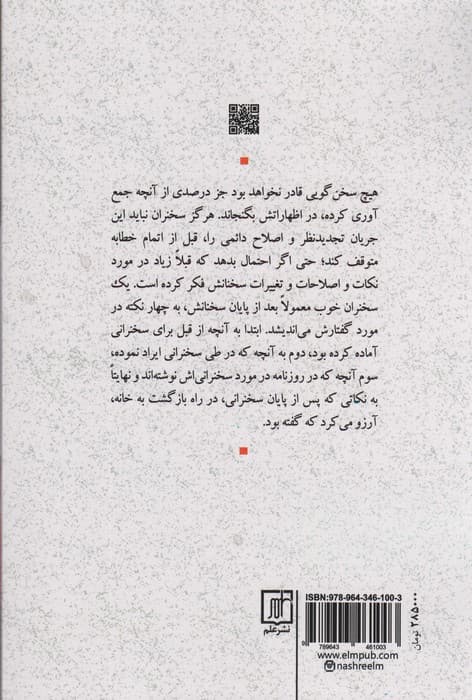 هیچ سخن‌گویی قادر نخواهد بود جز درصدی از آنچه جمع
آوری کرده، در اظهاراتش بگنجاند. هرگز سخنران نباید این
جریان تجدیدنظر و اصلاح دائمی را، قبل از اتمام خطابه
متوقف کند؛ حتی اگر احتمال بدهد که قبلاً زیاد در مورد
نکات و اصلاحات و تغییرات سخنانش فکر کرده است. یک
سخنران خوب معمولاً بعد از پایان سخنانش، به چهار نکته در
مورد گفتارش می‌اندیشد. ابتدا به آنچه از قبل برای سخنرانی
آماده کرده بود، دوم به آنچه که در طی سخنرانی ایراد نموده،
سوم آنچه که در روزنامه در مورد سخنرانی‌اش نوشته‌اند و نهایتاً
به نکاتی که پس از پایان سخنرانی، در راه بازگشت به خانه،
آرزو می‌کرد که گفته بود.
نشر علم
ISBN:978-964-346-100-3
9 789643 461003
www.elmpub.com
nashreelm
۲۸۵۰۰۰ تومان